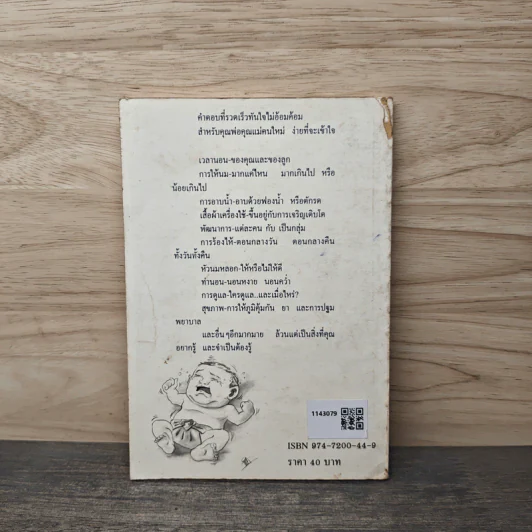 คำตอบที่รวดเร็วทันใจไม่อ้อมค้อม
สำหรับคุณพ่อคุณแม่คนใหม่ ง่ายที่จะเข้าใจ
เวลานอน-ของคุณและของลูก
การให้นม-มากแค่ไหน มากเกินไป หรือ
น้อยเกินไป
การอาบน้ำ-อาบด้วยฟองน้ำ หรือตักรด
เสื้อผ้าเครื่องใช้-ขึ้นอยู่กับการเจริญเติบโต
พัฒนาการ-แต่ละคน กับ เป็นกลุ่ม
การร้องไห้-ตอนกลางวัน ตอนกลางคืน
ทั้งวันทั้งคืน
หัวนมหลอก-ให้หรือไม่ให้ดี
ท่านอน-นอนหงาย นอนคว่ำ
การดูแล-ใครดูแล..และเมื่อไหร่?
สุขภาพ-การให้ภูมิคุ้มกัน ยา และการปฐม
พยาบาล
และอื่นๆอีกมากมาย ล้วนแต่เป็นสิ่งที่คุณ
อยากรู้ และจำเป็นต้องรู้
1143079
ISBN 974-7200-44-9
ราคา 40 บาท